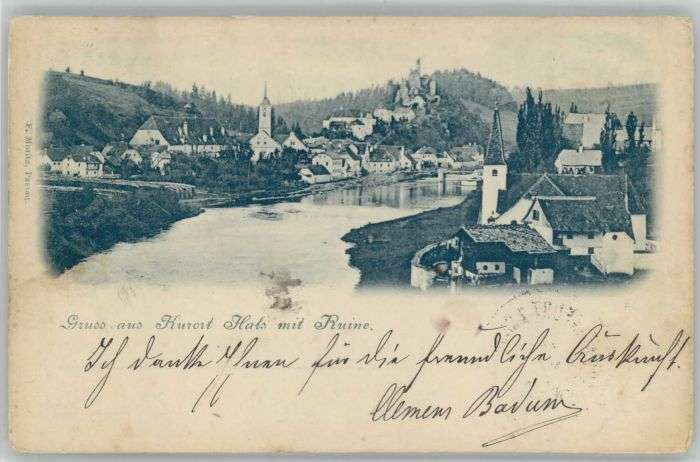 Gruss aus Kurort Hals mit Ruine.
Ich danke Ihnen für die freundliche Auskunft.
Clemens Badum